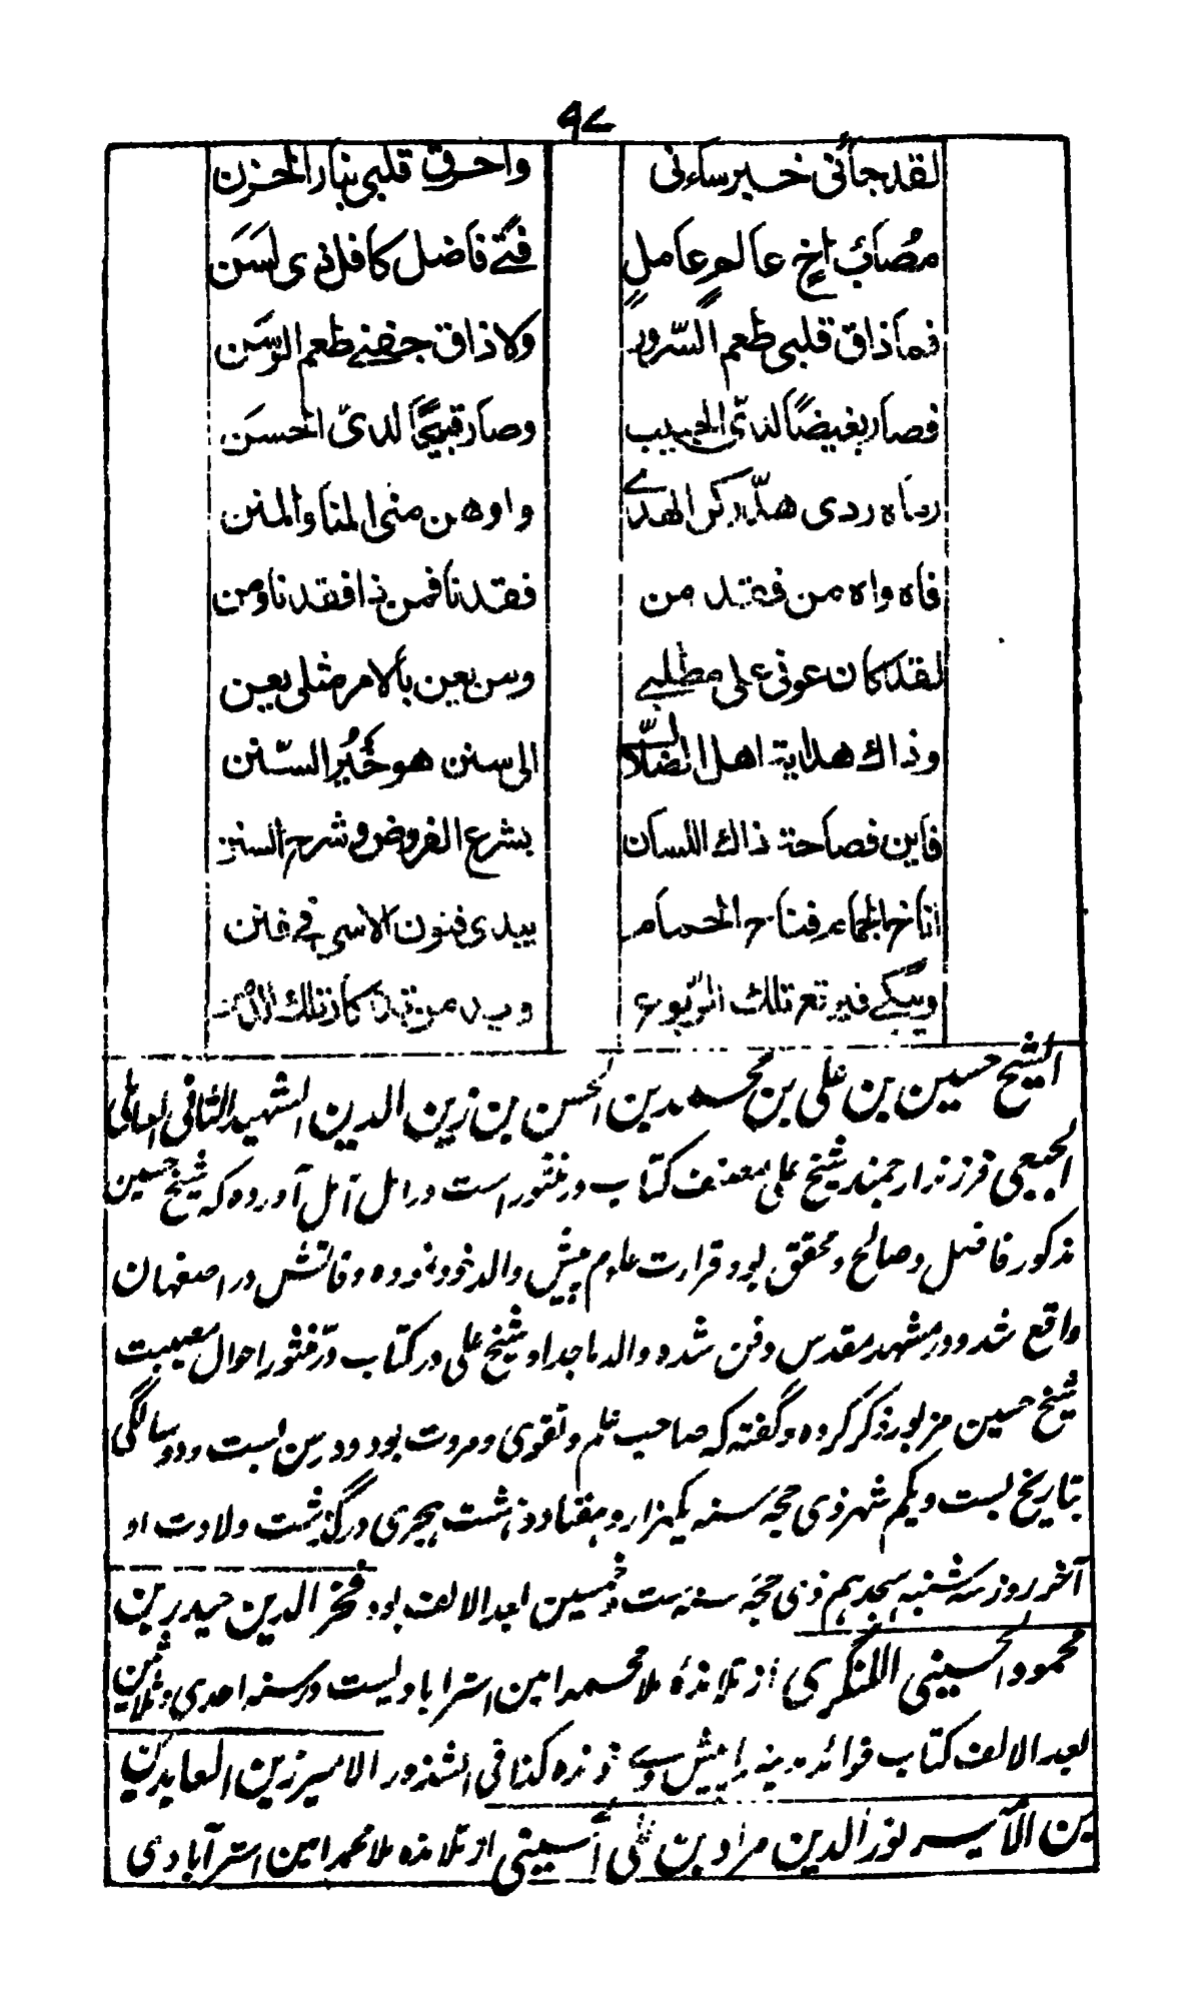 ٩٧
لقد جاءنی خبر ساءنی واحرق قلبی بنار الحزن
مُصَابُ اخٍ عالمٍ عاملٍ فتی فاضل کافل ذی لَسَن
فما ذاق قلبی طعم السّرور ولا ذاق جفنی طعم الوسَن
فصار بغیضًا لدیّ الحبیب وصار قبیحًا لدیّ الحسن
رماه ردی هدّ رکن الهدی واوهن منی المنا والمنن
فاه واه من فقد من فقدنا فمن ذا فقدنا ومن
لقد کان عونی علی مطلبی ومن یعن بالامر مثلی یعن
وذاك هدایة اهل الضلال الی سنن هو خُبْر السّنن
فاین فصاحة ذاك اللسان بشرع الفروض وشرح السنن
فناح الحمام یبدی فنون الاسی فی فنن
ویبکی تلك الرّبوع تلك
الشیخ حسین بن علی بن محمد بن الحسن بن زین الدین الشهید الثانی العاملی
الجبعی فرزند ارجمند شیخ علی مصنف کتاب در منثور است در امل آمل آورده که شیخ حسین
مذکور فاضل و صالح و محقق بود و قراءت علوم پیش والد خود نموده وفاتش در اصفهان
واقع شد و در مشهد مقدس دفن شده والد ماجد او شیخ علی در کتاب درّ منثور احوال مصیبت
شیخ حسین مزبور ذکر کرده و گفته که صاحب علم و تقوی و مروت بود و در سن بست و دو سالگی
بتاریخ بست و یکم شهر ذی حجه سنه یکهزار و هفتاد و هشت هجری درگذشت ولادت او
آخر روز سه شنبه هیجدهم ذی حجه سنه ست و خمسین بعد الالف بود فخر الدین حیدر بن
محمود الحسینی اللنگری از تلامذهٔ ملا محمد امین استرابادیست در سنه احدی و ثلاثین
بعد الالف کتاب فوائد مدینه را پیش وی خوانده کذا فی الشذور الامیر زین العابدین
بن الآمیر نور الدین مراد بن علی الحسینی از تلامذه ملا محمد امین استرآبادی